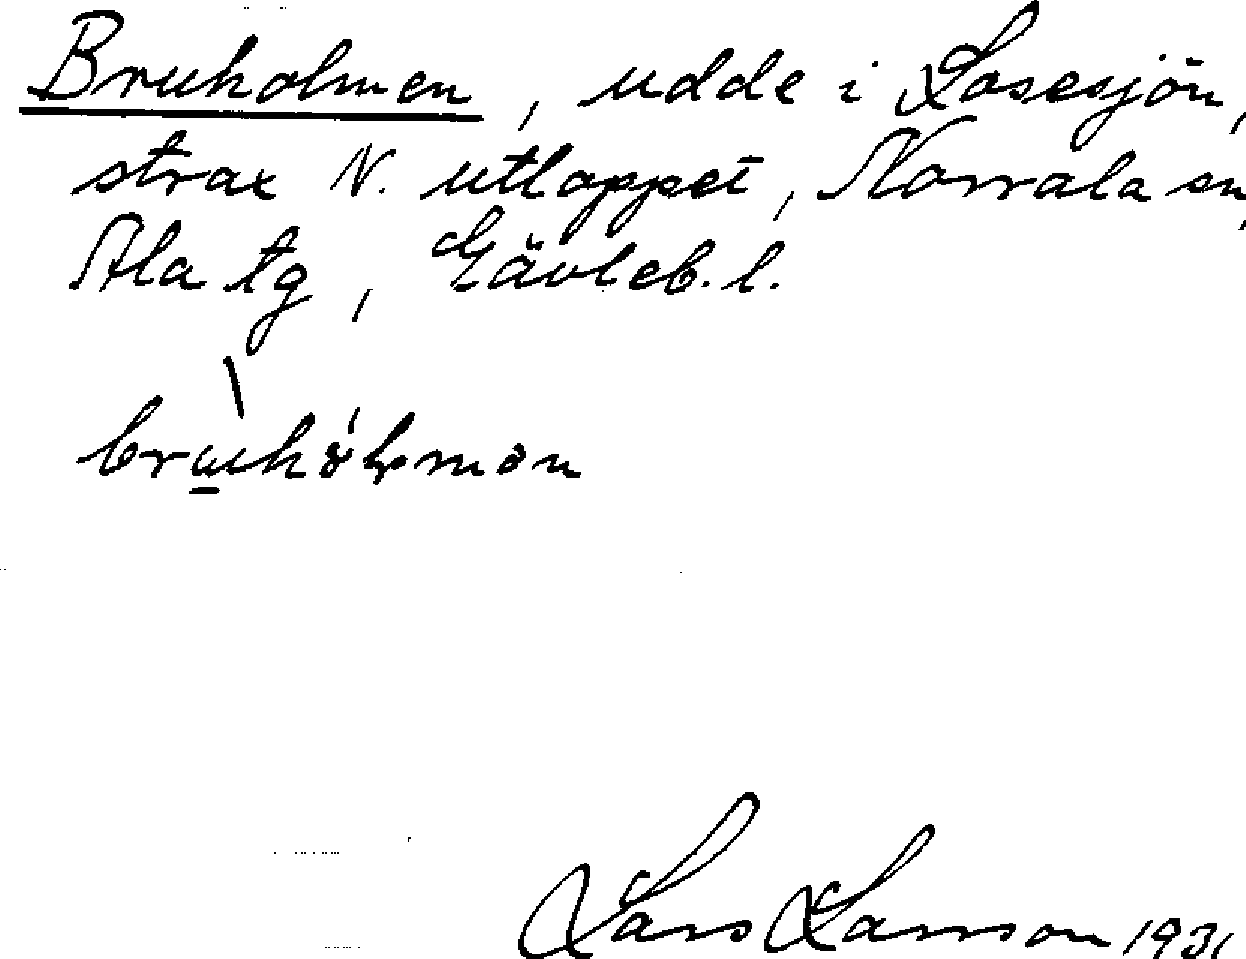 Bruholmen, udde i Losesjön,
strax N. utloppet, Norrala sn,
Ala tg, Gävleb. l.
Lars Larsson 1931